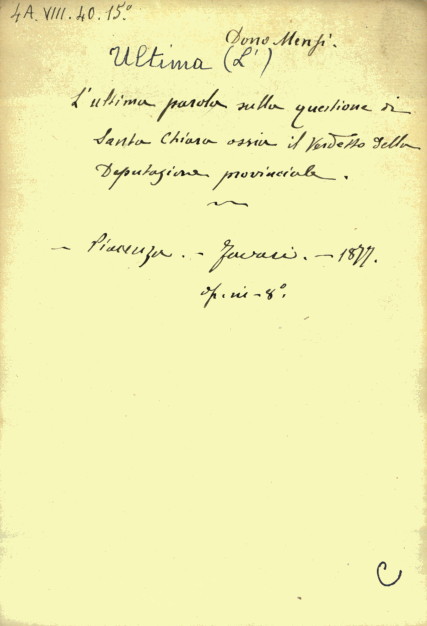 4A. VIII. 40. 15°
Dono Mensi.
Ultima (L')
L'ultima parola sulla questione di
Santa Chiara ossia il Verdetto della
Deputazione provinciale.
— Piacenza. – Tavasi. – 1877.
op. in – 8°.
C